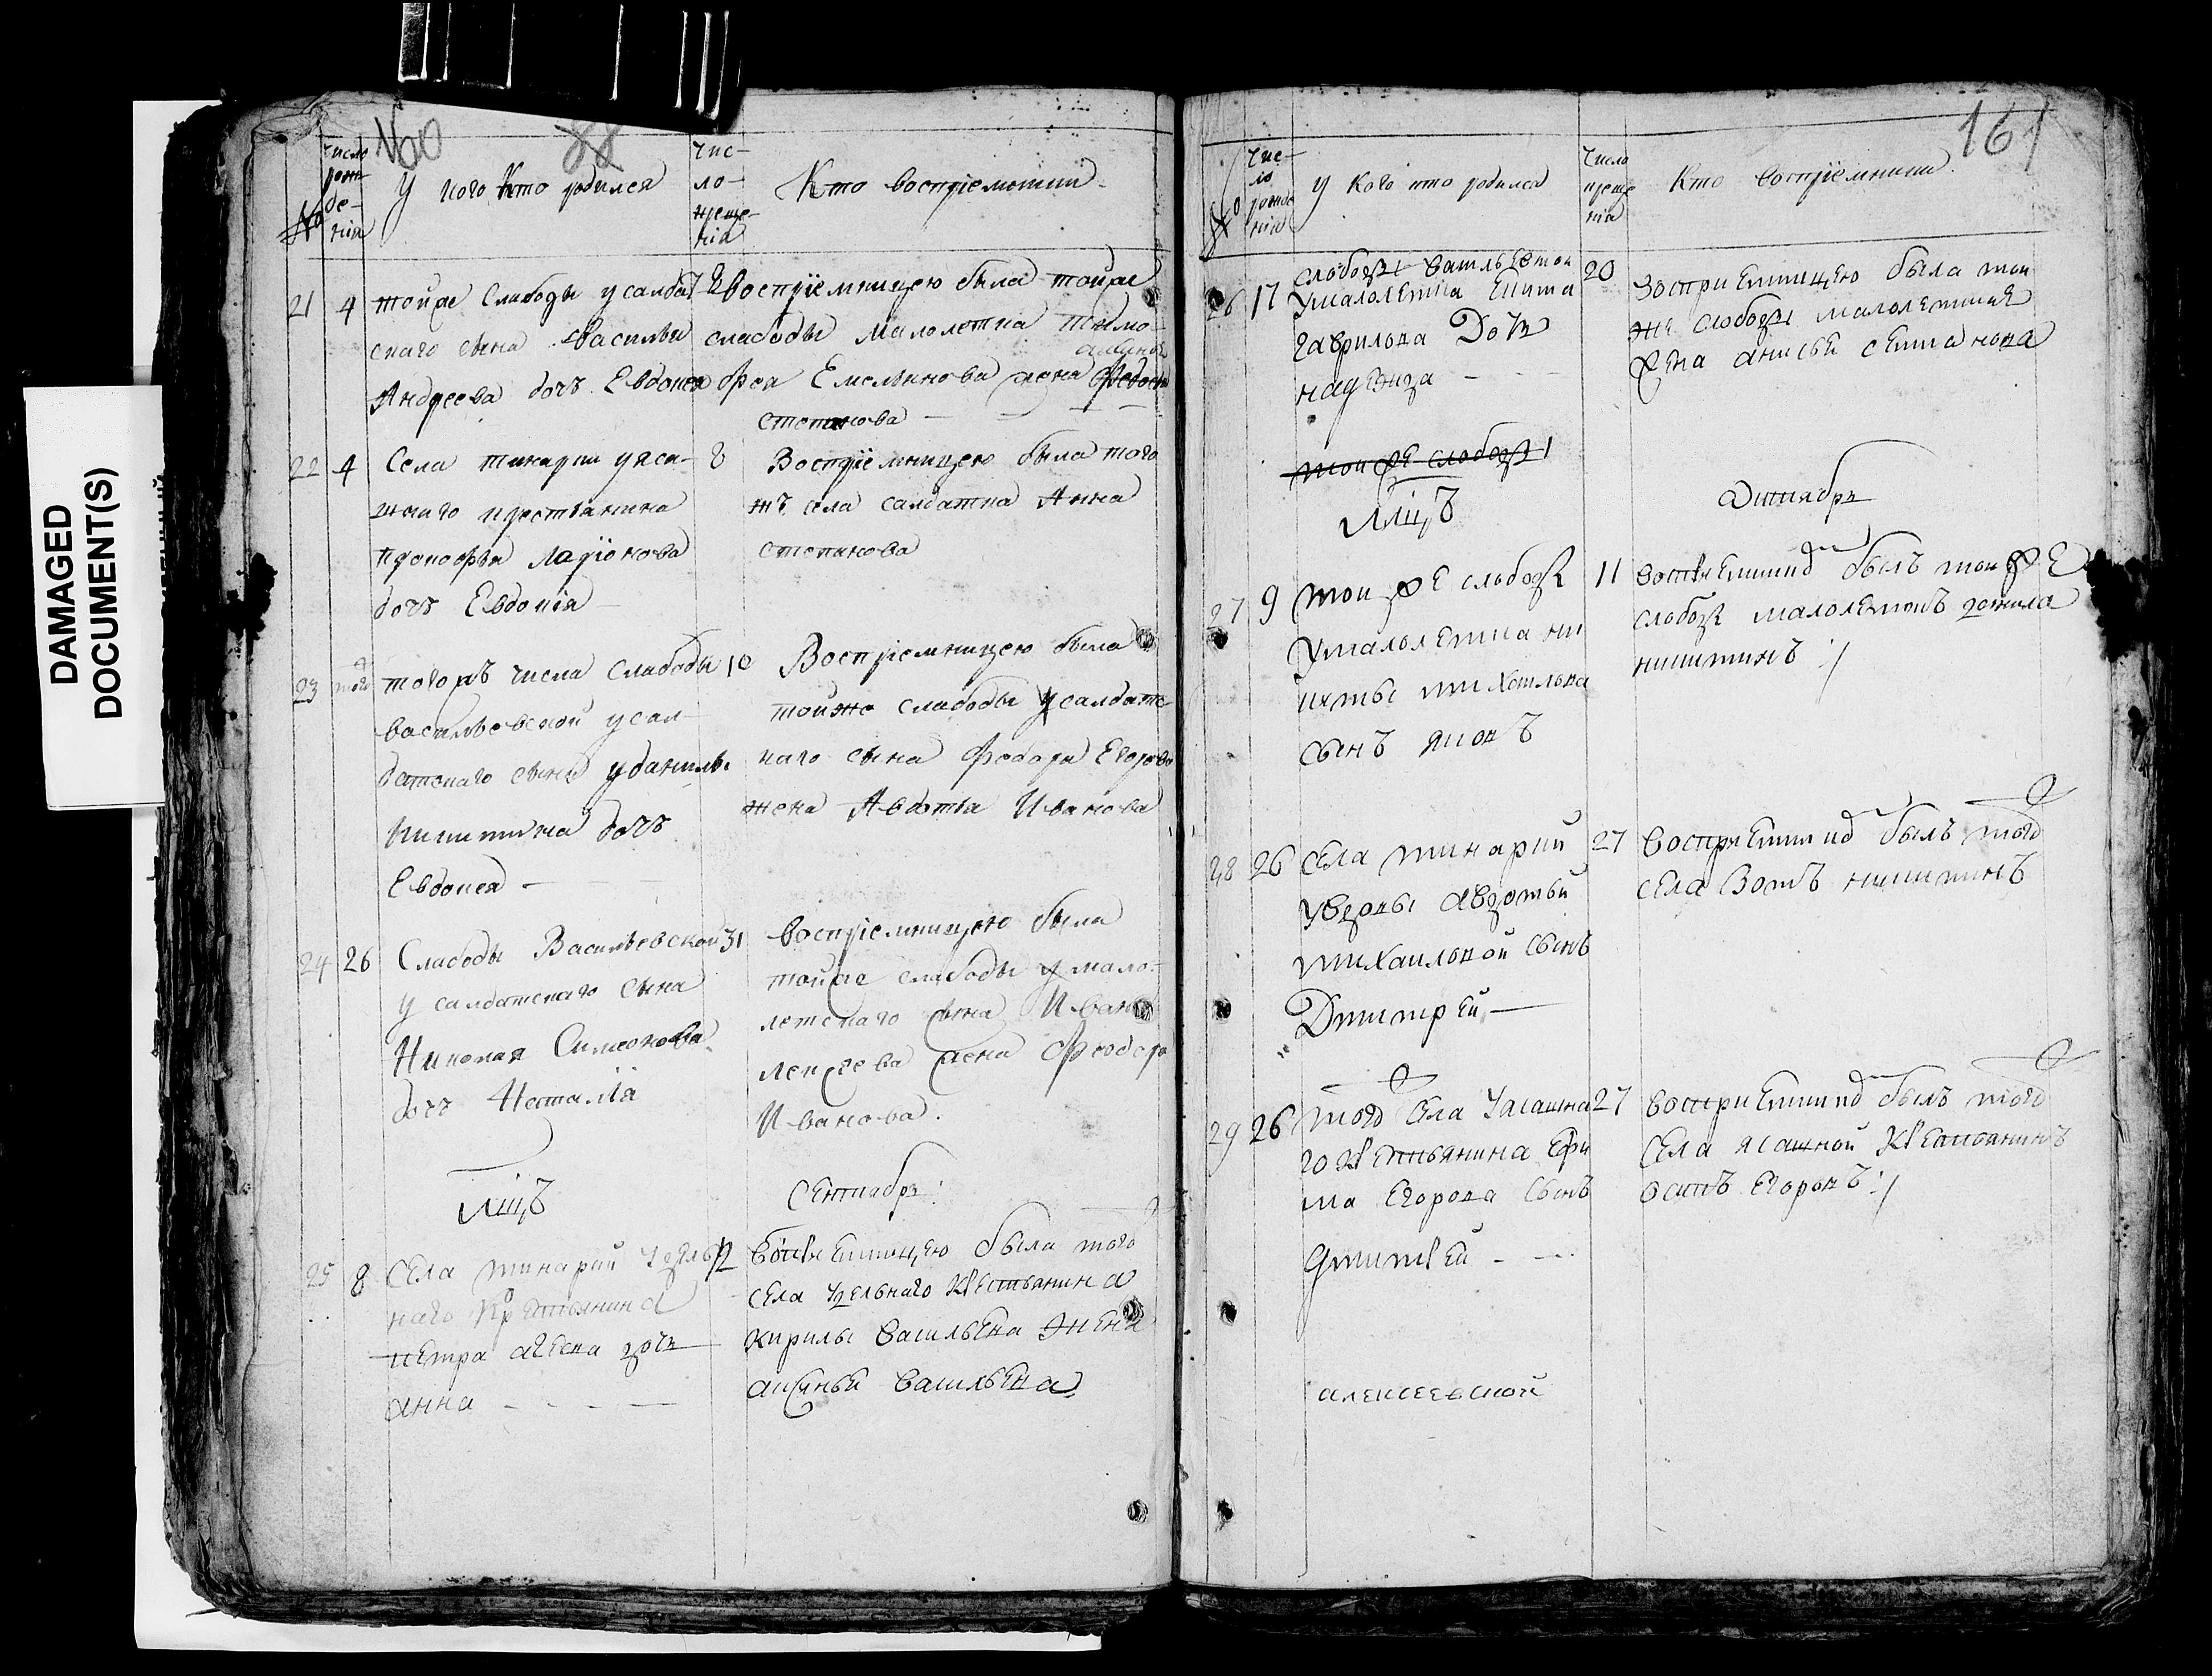 DAMAGED
DOCUMENT(S)
160
88
№
число
рож-
де-
нія
У кого Кто родился
чис-
ло
креще-
нія
Кто воспріемники
21 4 тойже Слабоды у салдат
скаго сына Василья
Андреева дочь Евдокея
Воспріемницею была тойже
слабоды малолетка Тимо-
фея Емельянова жена
степанова
22 4 Села тинарии уяса-
шнаго крестьянина
прокофья Ларіонова
дочь Евдокія
8 Воспріемницею была того
жъ села салдатка Анна
степанова
23 того 4 тогожъ числа Слабоды
васильевской усал-
датскаго сына уданилы
Никитина дочь
Евдокея
10 Воспріемницею была
тойже слабоды усалдатс
каго сына Федора Егорова
жена Авдотья Иванова
24 26 Слабоды Васильевской
у салдатскаго Сына
Николая Симеонова
дочь Наталія
31 воспріемницею была
тойже слабоды у мало-
летскаго сына Ивана
Алексеева жена Феодора
Иванова.
Мцъ
Сентябрь:
25 8 Села тинарий удѣль
наго крестьянина
петра авдеева дочь
анна
12 воспрiемницею была того
села удельнаго крестьянина
кирилы васильева жена
аксинья васильева
161
№
чис-
ло
рожде
нія
у Кого кто родился
Число
креще
нія
Кто воспріемники.
26 17 слободы васильевской
умалолетка
гаврилова Дочь
надежда
20 воспрiемницею была той
же слободы малолетка
жена анисья степанова
той же слободы
Мцъ
Октябрь
27 9 той же слободы
умалолетка ни
киты михаилова
сынъ яковъ
11 воспрiемникъ былъ той же
слободы малолетокъ данила
никитинъ :/
28 26 села тинарий
увдовы авдотьи
михаиловой сынъ
Дмитрей
27 воспрiемникъ былъ того
села никитинъ
29 26 того села уясашна
го крестьянина ефи
ма егорова сынъ
дмитрей
27 воспрiемникъ былъ того
села ясашной крестьянинъ
осипъ егоровъ :/
алексеевской